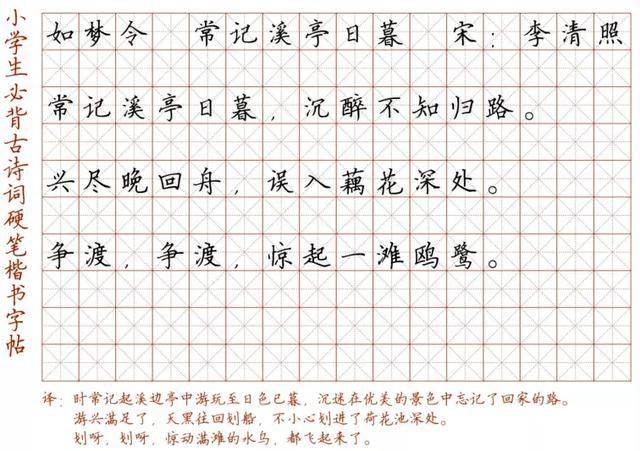 小学生必背古诗词硬笔楷书字帖
如梦令 常记溪亭日暮 宋：李清照
常记溪亭日暮，沉醉不知归路。
兴尽晚回舟，误入藕花深处。
争渡，争渡，惊起一滩鸥鹭。
译：时常记起溪边亭中游玩至日色已暮，沉迷在优美的景色中忘记了回家的路。
游兴满足了，天黑往回划船，不小心划进了荷花池深处。
划呀，划呀，惊动满滩的水鸟，都飞起来了。